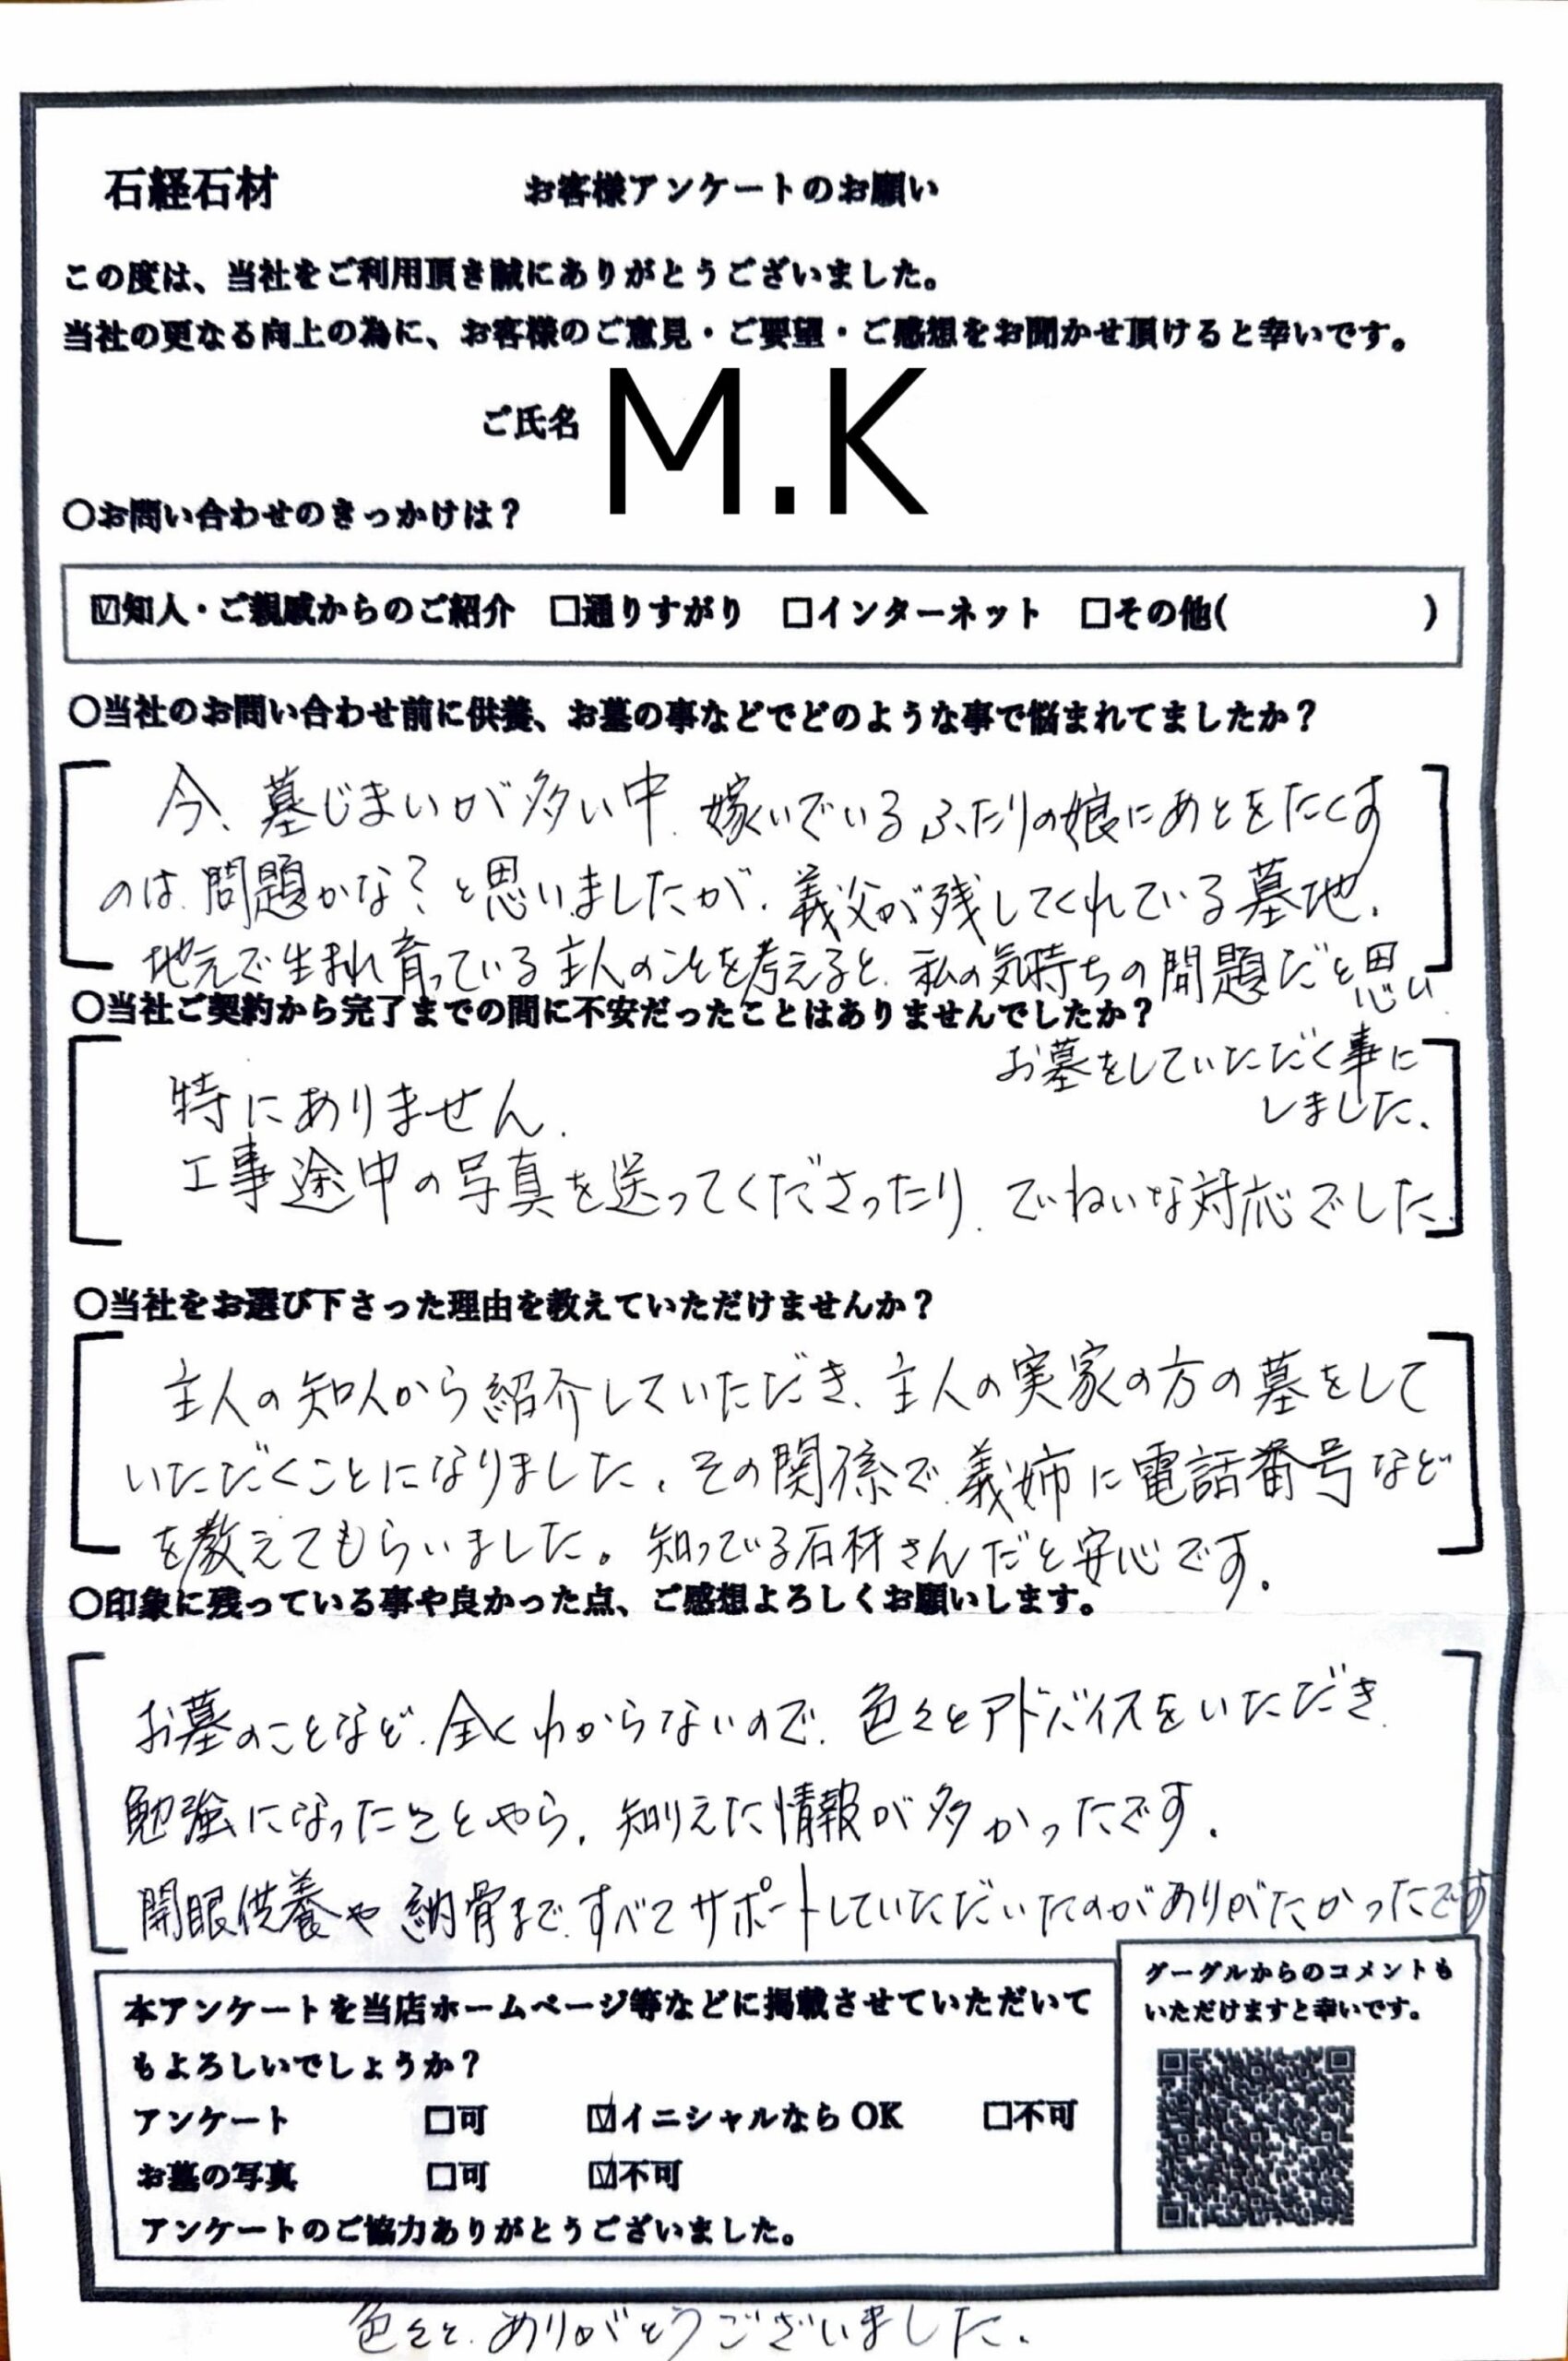 石経石材　お客様アンケートのお願い
この度は、当社をご利用頂き誠にありがとうございました。
当社の更なる向上の為に、お客様のご意見・ご要望・ご感想をお聞かせ頂けると幸いです。
ご氏名 M.K
〇お問い合わせのきっかけは？
☑知人・ご親戚からのご紹介　□通りすがり　□インターネット　□その他(　　　)
〇当社のお問い合わせ前に供養、お墓の事などでどのような事で悩まれてましたか？
今、墓じまいが多い中、嫁いでいるふたりの娘にあとをたくす
のは、問題かな？と思いましたが、義父が残してくれている墓地、
地元で生まれ育っている主人のことを考えると、私の気持ちの問題だと思い
お墓をしていただく事に
しました。
〇当社ご契約から完了までの間に不安だったことはありませんでしたか？
特にありません。
工事途中の写真を送ってくださったり、ていねいな対応でした。
〇当社をお選び下さった理由を教えていただけませんか？
主人の知人から紹介していただき、主人の実家の方の墓をして
いただくことになりました。その関係で、義姉に電話番号など
を教えてもらいました。知っている石材さんだと安心です。
〇印象に残っている事や良かった点、ご感想よろしくお願いします。
お墓のことなど、全くわからないので、色々とアドバイスをいただき、
勉強になったことやら、知りえた情報が多かったです。
開眼供養や納骨まで、すべてサポートしていただいたのがありがたかったです
本アンケートを当店ホームページ等などに掲載させていただいて
もよろしいでしょうか？
アンケート　□可　☑イニシャルならOK　□不可
お墓の写真　□可　☑不可
アンケートのご協力ありがとうございました。
グーグルからのコメントも
いただけますと幸いです。
色々と、ありがとうございました。